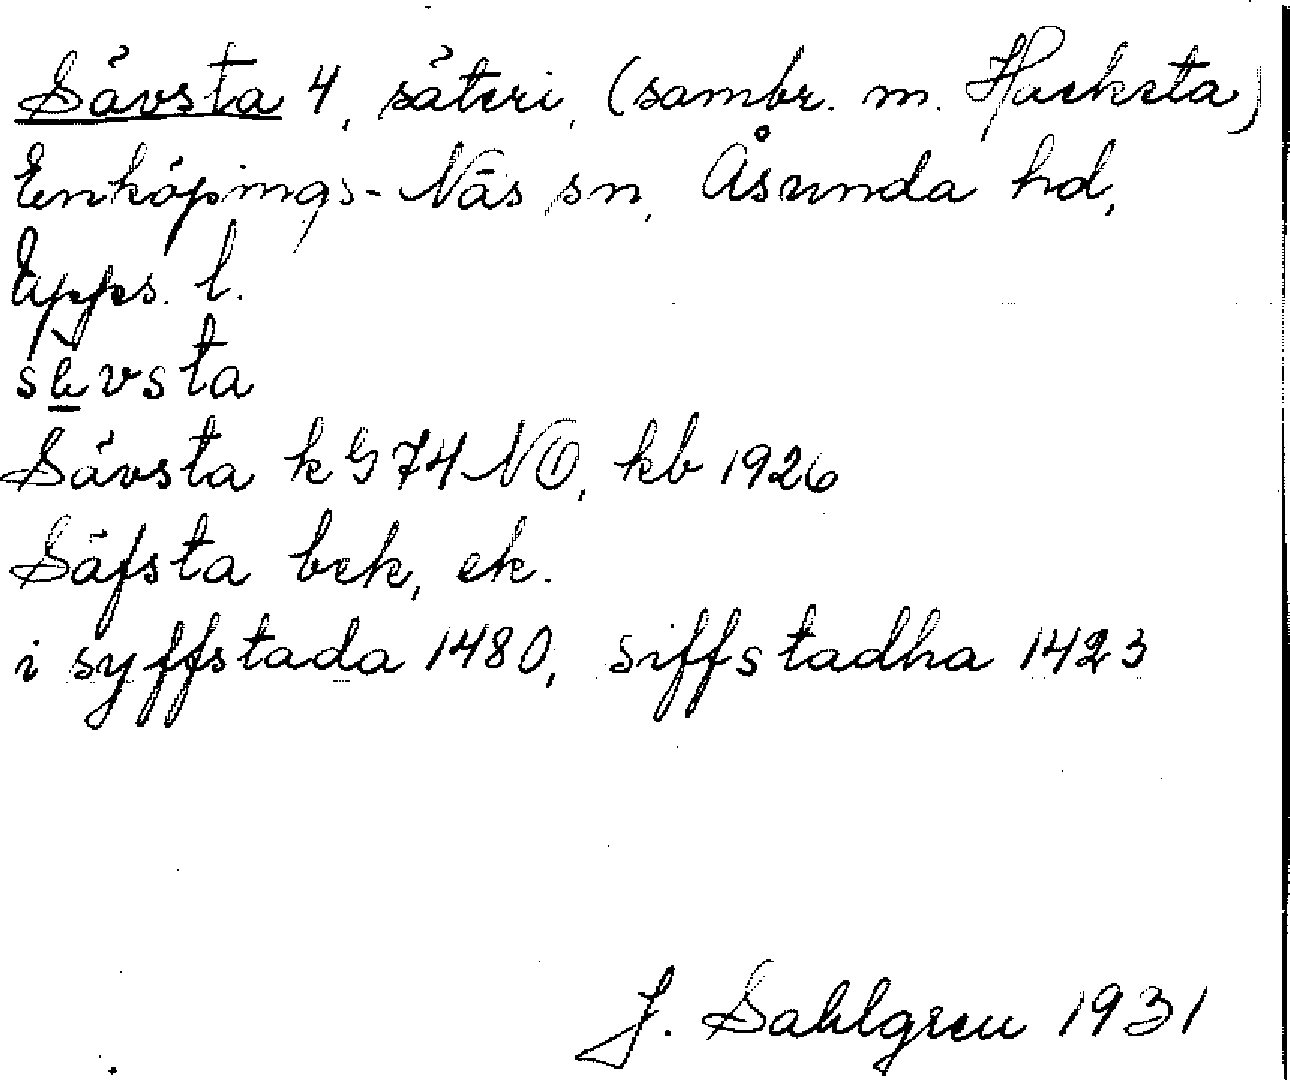 Sävsta 4, säteri, (sambr. m. Hacksta)
Enköpings-Näs sn, Åsunda hd,
Upps. l.
sævsta
Sävsta k G 74 NO, kb 1926
Säfsta bek, ek.
i syffstada 1480, siffstadha 1423
J. Sahlgren 1931